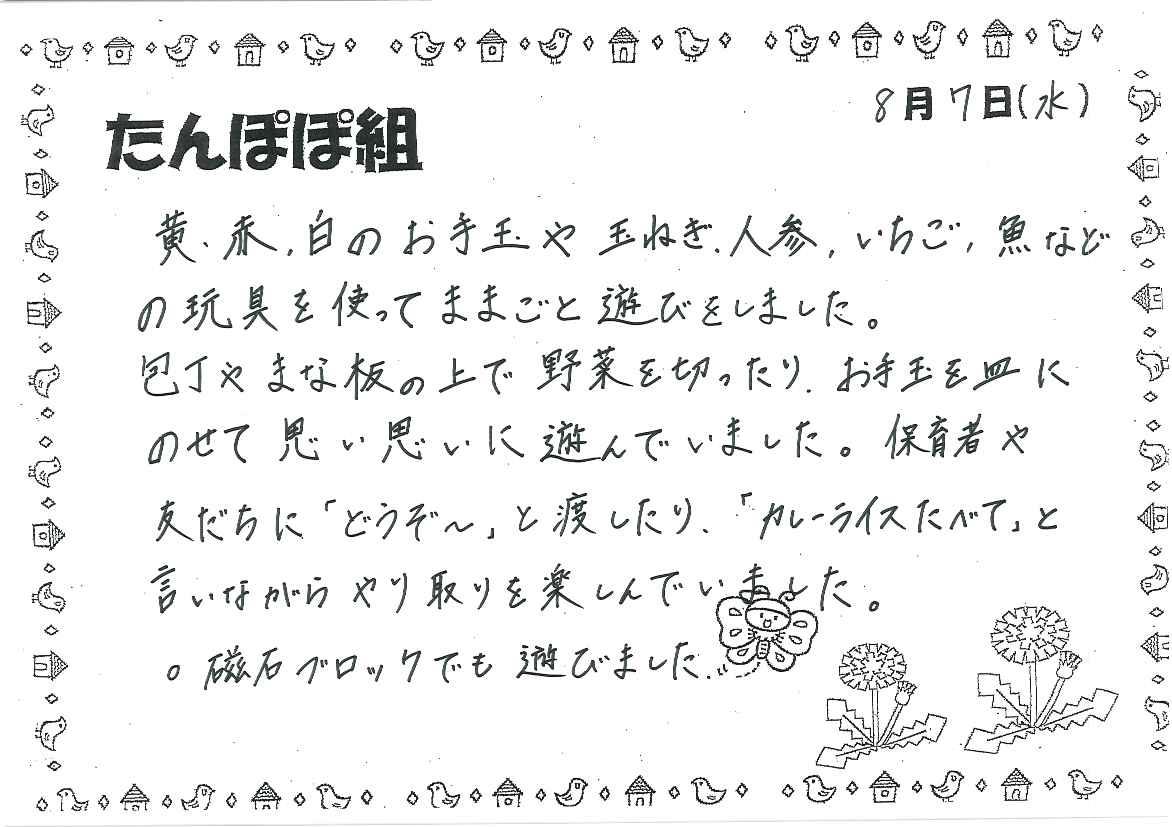 8月7日(水)
たんぽぽ組
黄、赤、白のお手玉や玉ねぎ、人参、いちご、魚など
の玩具を使ってままごと遊びをしました。
包丁やまな板の上で野菜を切ったり、お手玉を皿に
のせて思い思いに遊んでいました。保育者や
友だちに「どうぞ〜」と渡したり、「カレーライスたべて」と
言いながらやり取りを楽しんでいました。
○磁石ブロックでも遊びました。